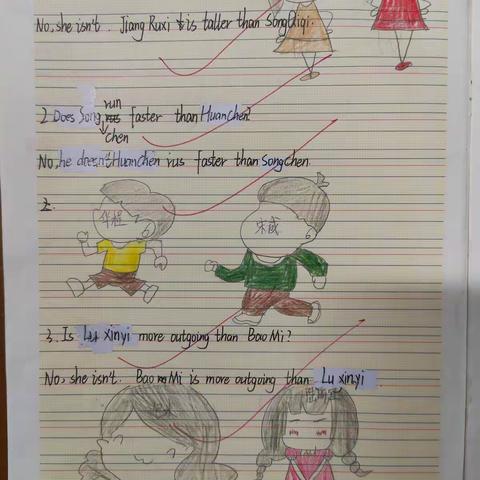 No, she isn't. Jiang Ruxi is taller than SongQiqi.
run
2. Does Song faster than Huanchen?
chen
No, he doesn't Huanchen rus faster than Song chen.
2.
华程
宋成
3. Is Lu xinyi more outgoing than Bao Mi?
No, she isn't. Bao Mi is more outgoing than Lu xinyi